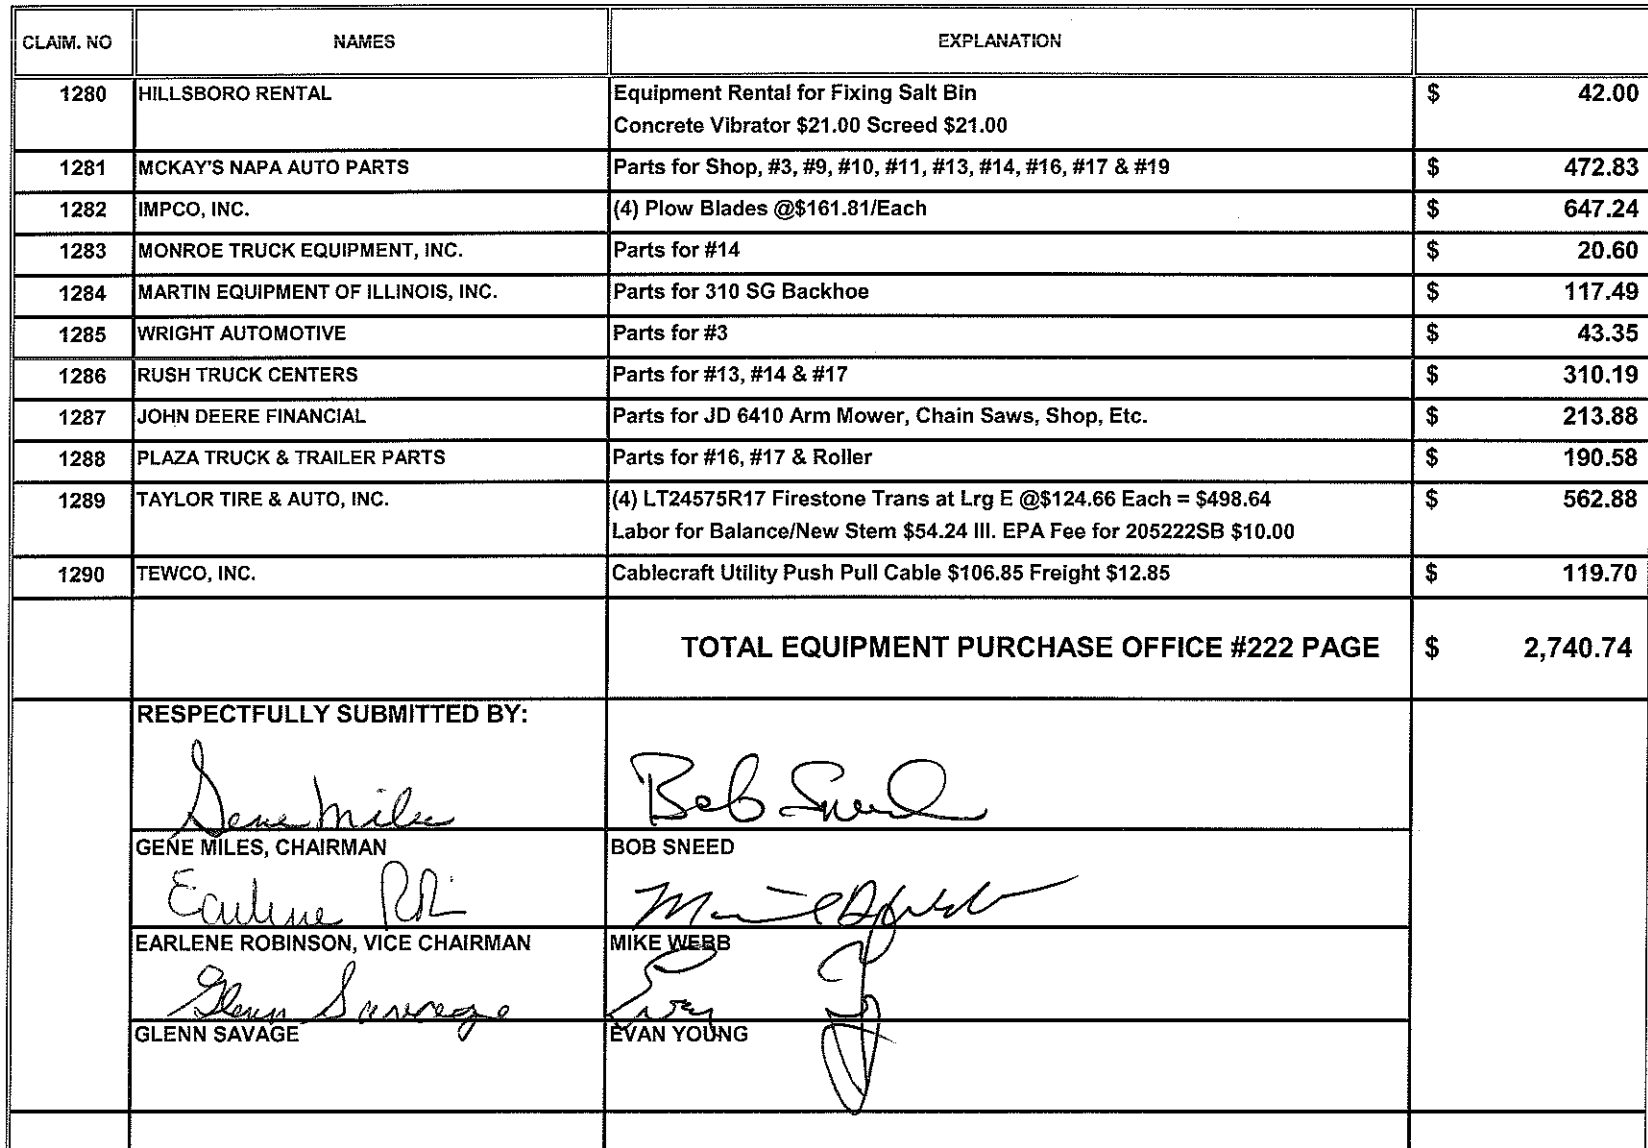 CLAIM. NO NAMES EXPLANATION
1280 HILLSBORO RENTAL Equipment Rental for Fixing Salt Bin $ 42.00
Concrete Vibrator $21.00 Screed $21.00
1281 MCKAY'S NAPA AUTO PARTS Parts for Shop, #3, #9, #10, #11, #13, #14, #16, #17 & #19 $ 472.83
1282 IMPCO, INC. (4) Plow Blades @$161.81/Each $ 647.24
1283 MONROE TRUCK EQUIPMENT, INC. Parts for #14 $ 20.60
1284 MARTIN EQUIPMENT OF ILLINOIS, INC. Parts for 310 SG Backhoe $ 117.49
1285 WRIGHT AUTOMOTIVE Parts for #3 $ 43.35
1286 RUSH TRUCK CENTERS Parts for #13, #14 & #17 $ 310.19
1287 JOHN DEERE FINANCIAL Parts for JD 6410 Arm Mower, Chain Saws, Shop, Etc. $ 213.88
1288 PLAZA TRUCK & TRAILER PARTS Parts for #16, #17 & Roller $ 190.58
1289 TAYLOR TIRE & AUTO, INC. (4) LT24575R17 Firestone Trans at Lrg E @$124.66 Each = $498.64 $ 562.88
Labor for Balance/New Stem $54.24 Ill. EPA Fee for 205222SB $10.00
1290 TEWCO, INC. Cablecraft Utility Push Pull Cable $106.85 Freight $12.85 $ 119.70
TOTAL EQUIPMENT PURCHASE OFFICE #222 PAGE $ 2,740.74
RESPECTFULLY SUBMITTED BY:
Gene Miles Bob Sneed
GENE MILES, CHAIRMAN BOB SNEED
Earlene
EARLENE ROBINSON, VICE CHAIRMAN MIKE WEBB
Glenn Savage Evan
GLENN SAVAGE EVAN YOUNG